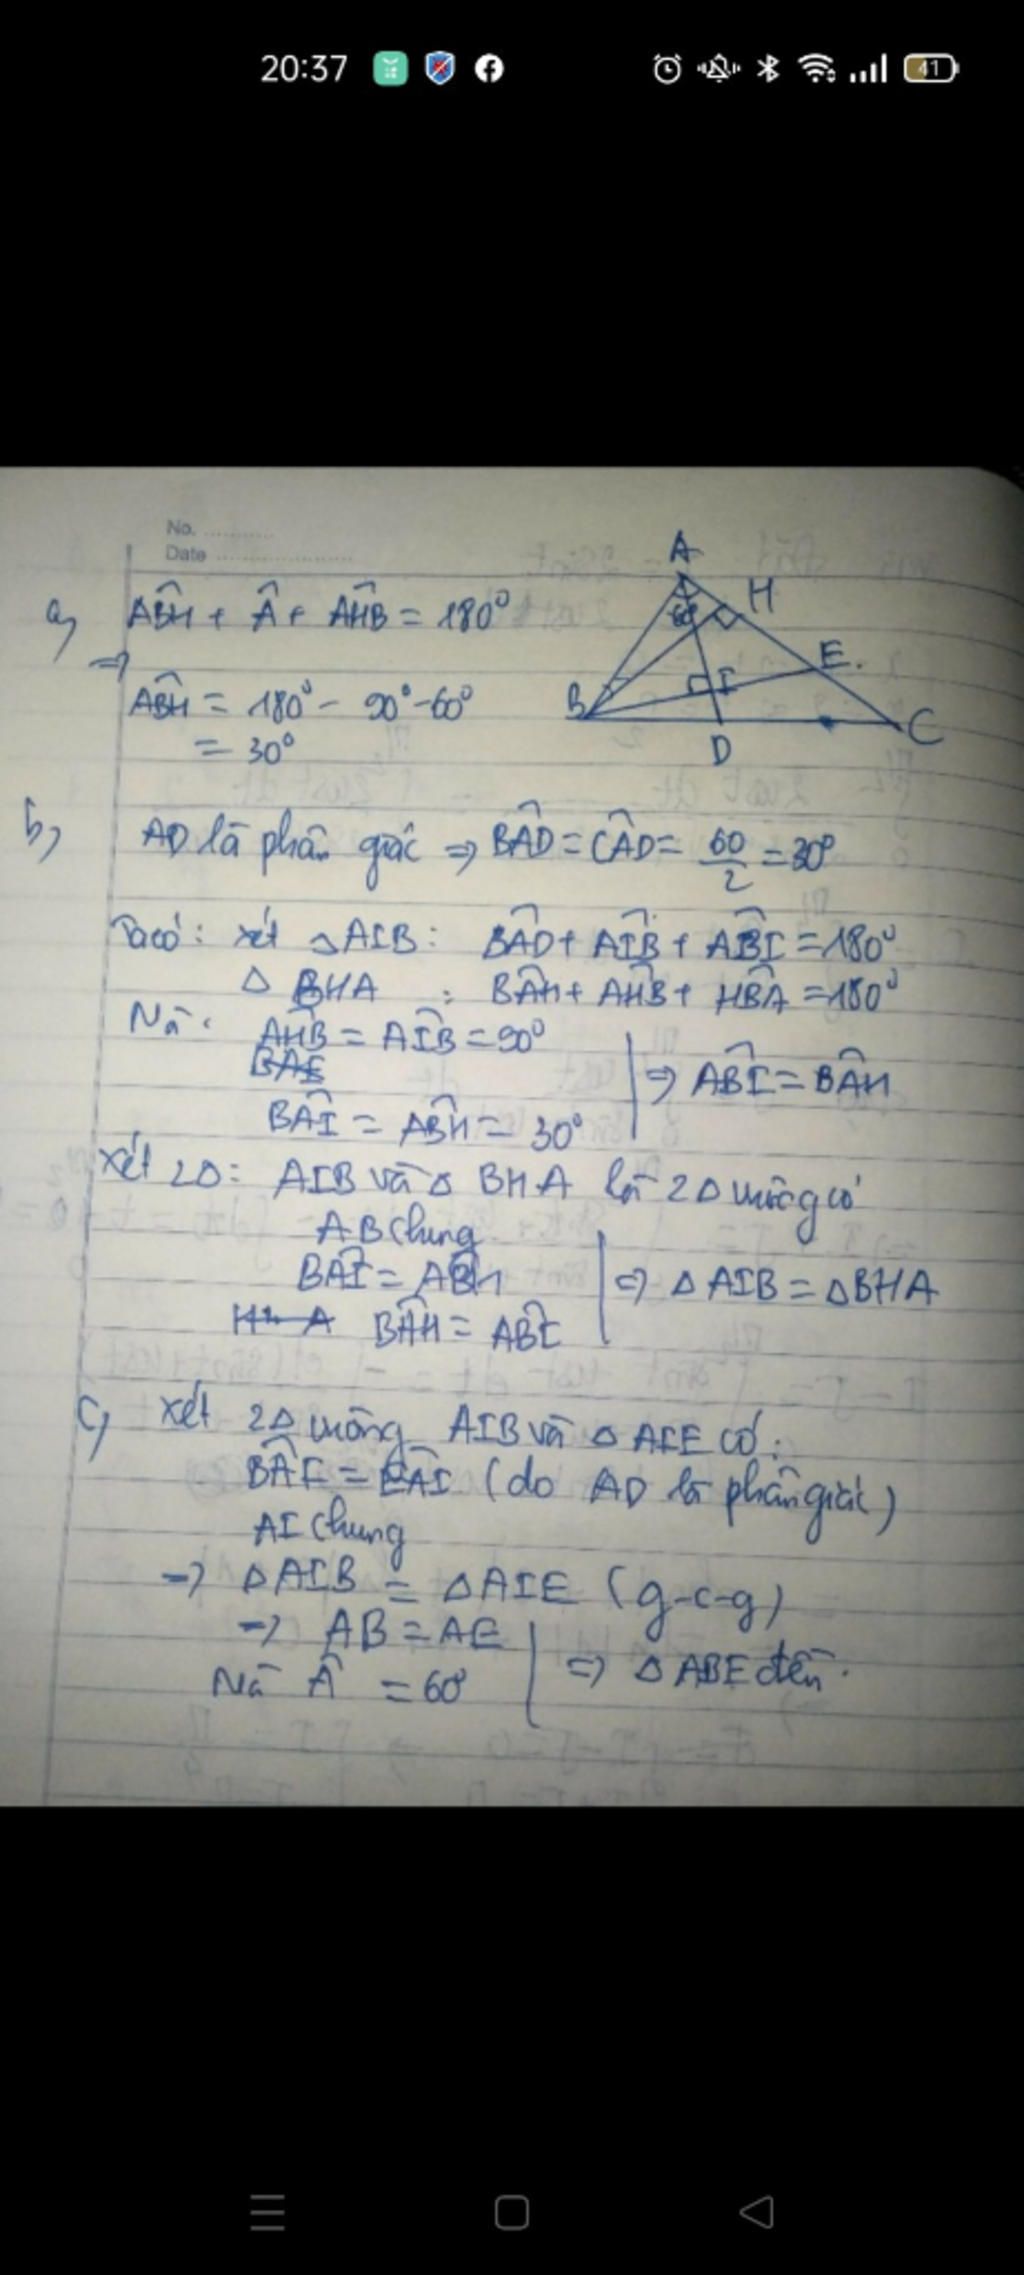 20:37
41
No. ............
Date ....................
A
H
60°
E.
B
I
C
D
a, ABH + Â + AHB = 180°
=>
ABH = 180° - 90° - 60°
= 30°
b, AD là phân giác => BAD = CAD = 60/2 = 30°
Ta có: xét △AIB: BAD + AIB + ABI = 180°
△ BHA : BAH + AHB + HBA = 180°
Mà: AHB = AIB = 90°
BAI = ABH = 30°
=> ABI = BAH
Xét 2△: AIB và △ BHA là 2△ vuông có
AB chung
BAI = ABH
BAH = ABI
=> △AIB = △BHA
c, Xét 2△ vuông AIB và △ AIE có:
BAI = EAI (do AD là phân giác)
AI chung
=> △AIB = △AIE (g-c-g)
=> AB = AE
Mà Â = 60°
=> △ABE đều.